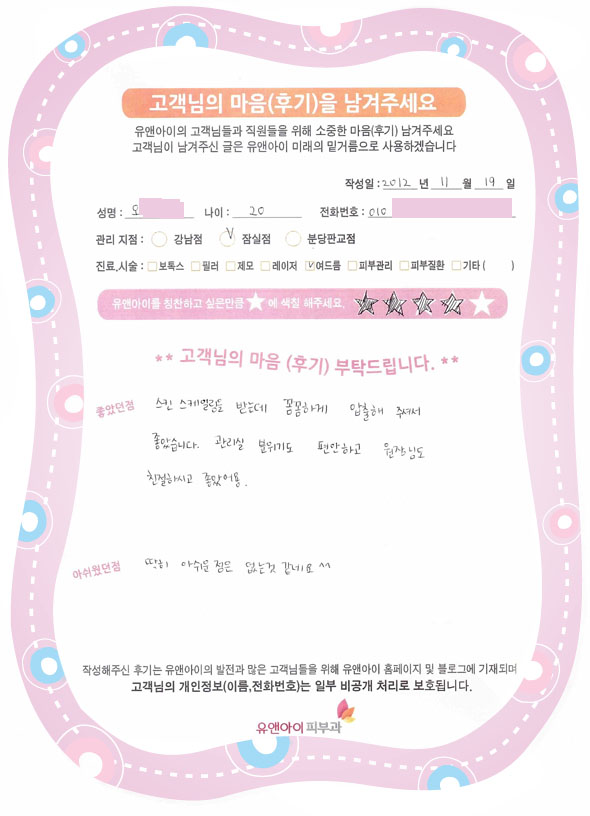 고객님의 마음(후기)을 남겨주세요
유앤아이의 고객님들과 직원들을 위해 소중한 마음(후기) 남겨주세요
고객님이 남겨주신 글은 유앤아이 미래의 밑거름으로 사용하겠습니다
작성일 : 2012 년 11 월 19 일
성명 : 오 나이 : 20 전화번호 : 010
관리 지점 : 강남점 잠실점 분당판교점
진료,시술 : 보톡스 필러 제모 레이저 여드름 피부관리 피부질환 기타 ( )
유앤아이를 칭찬하고 싶은만큼 ★에 색칠 해주세요.
** 고객님의 마음 (후기) 부탁드립니다. **
좋았던점 스킨 스케일링을 받는데 꼼꼼하게 압출해 주셔서
좋았습니다. 관리실 분위기도 편안하고 원장님도
친절하시고 좋았어용.
아쉬웠던점 딱히 아쉬운 점은 없는것 같네요 ^^
작성해주신 후기는 유앤아이의 발전과 많은 고객님들을 위해 유앤아이 홈페이지 및 블로그에 기재되며
고객님의 개인정보(이름,전화번호)는 일부 비공개 처리로 보호됩니다.
유앤아이피부과